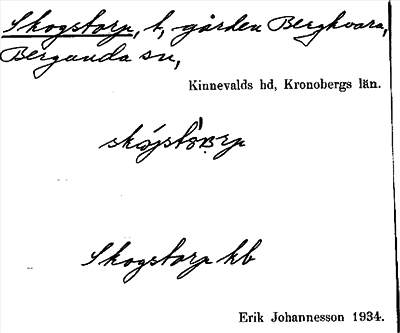 Skogstorp, t, gården Bergkvara,
Bergunda sn,
Kinnevalds hd, Kronobergs län.
Skogstorp hb
Erik Johannesson 1934.